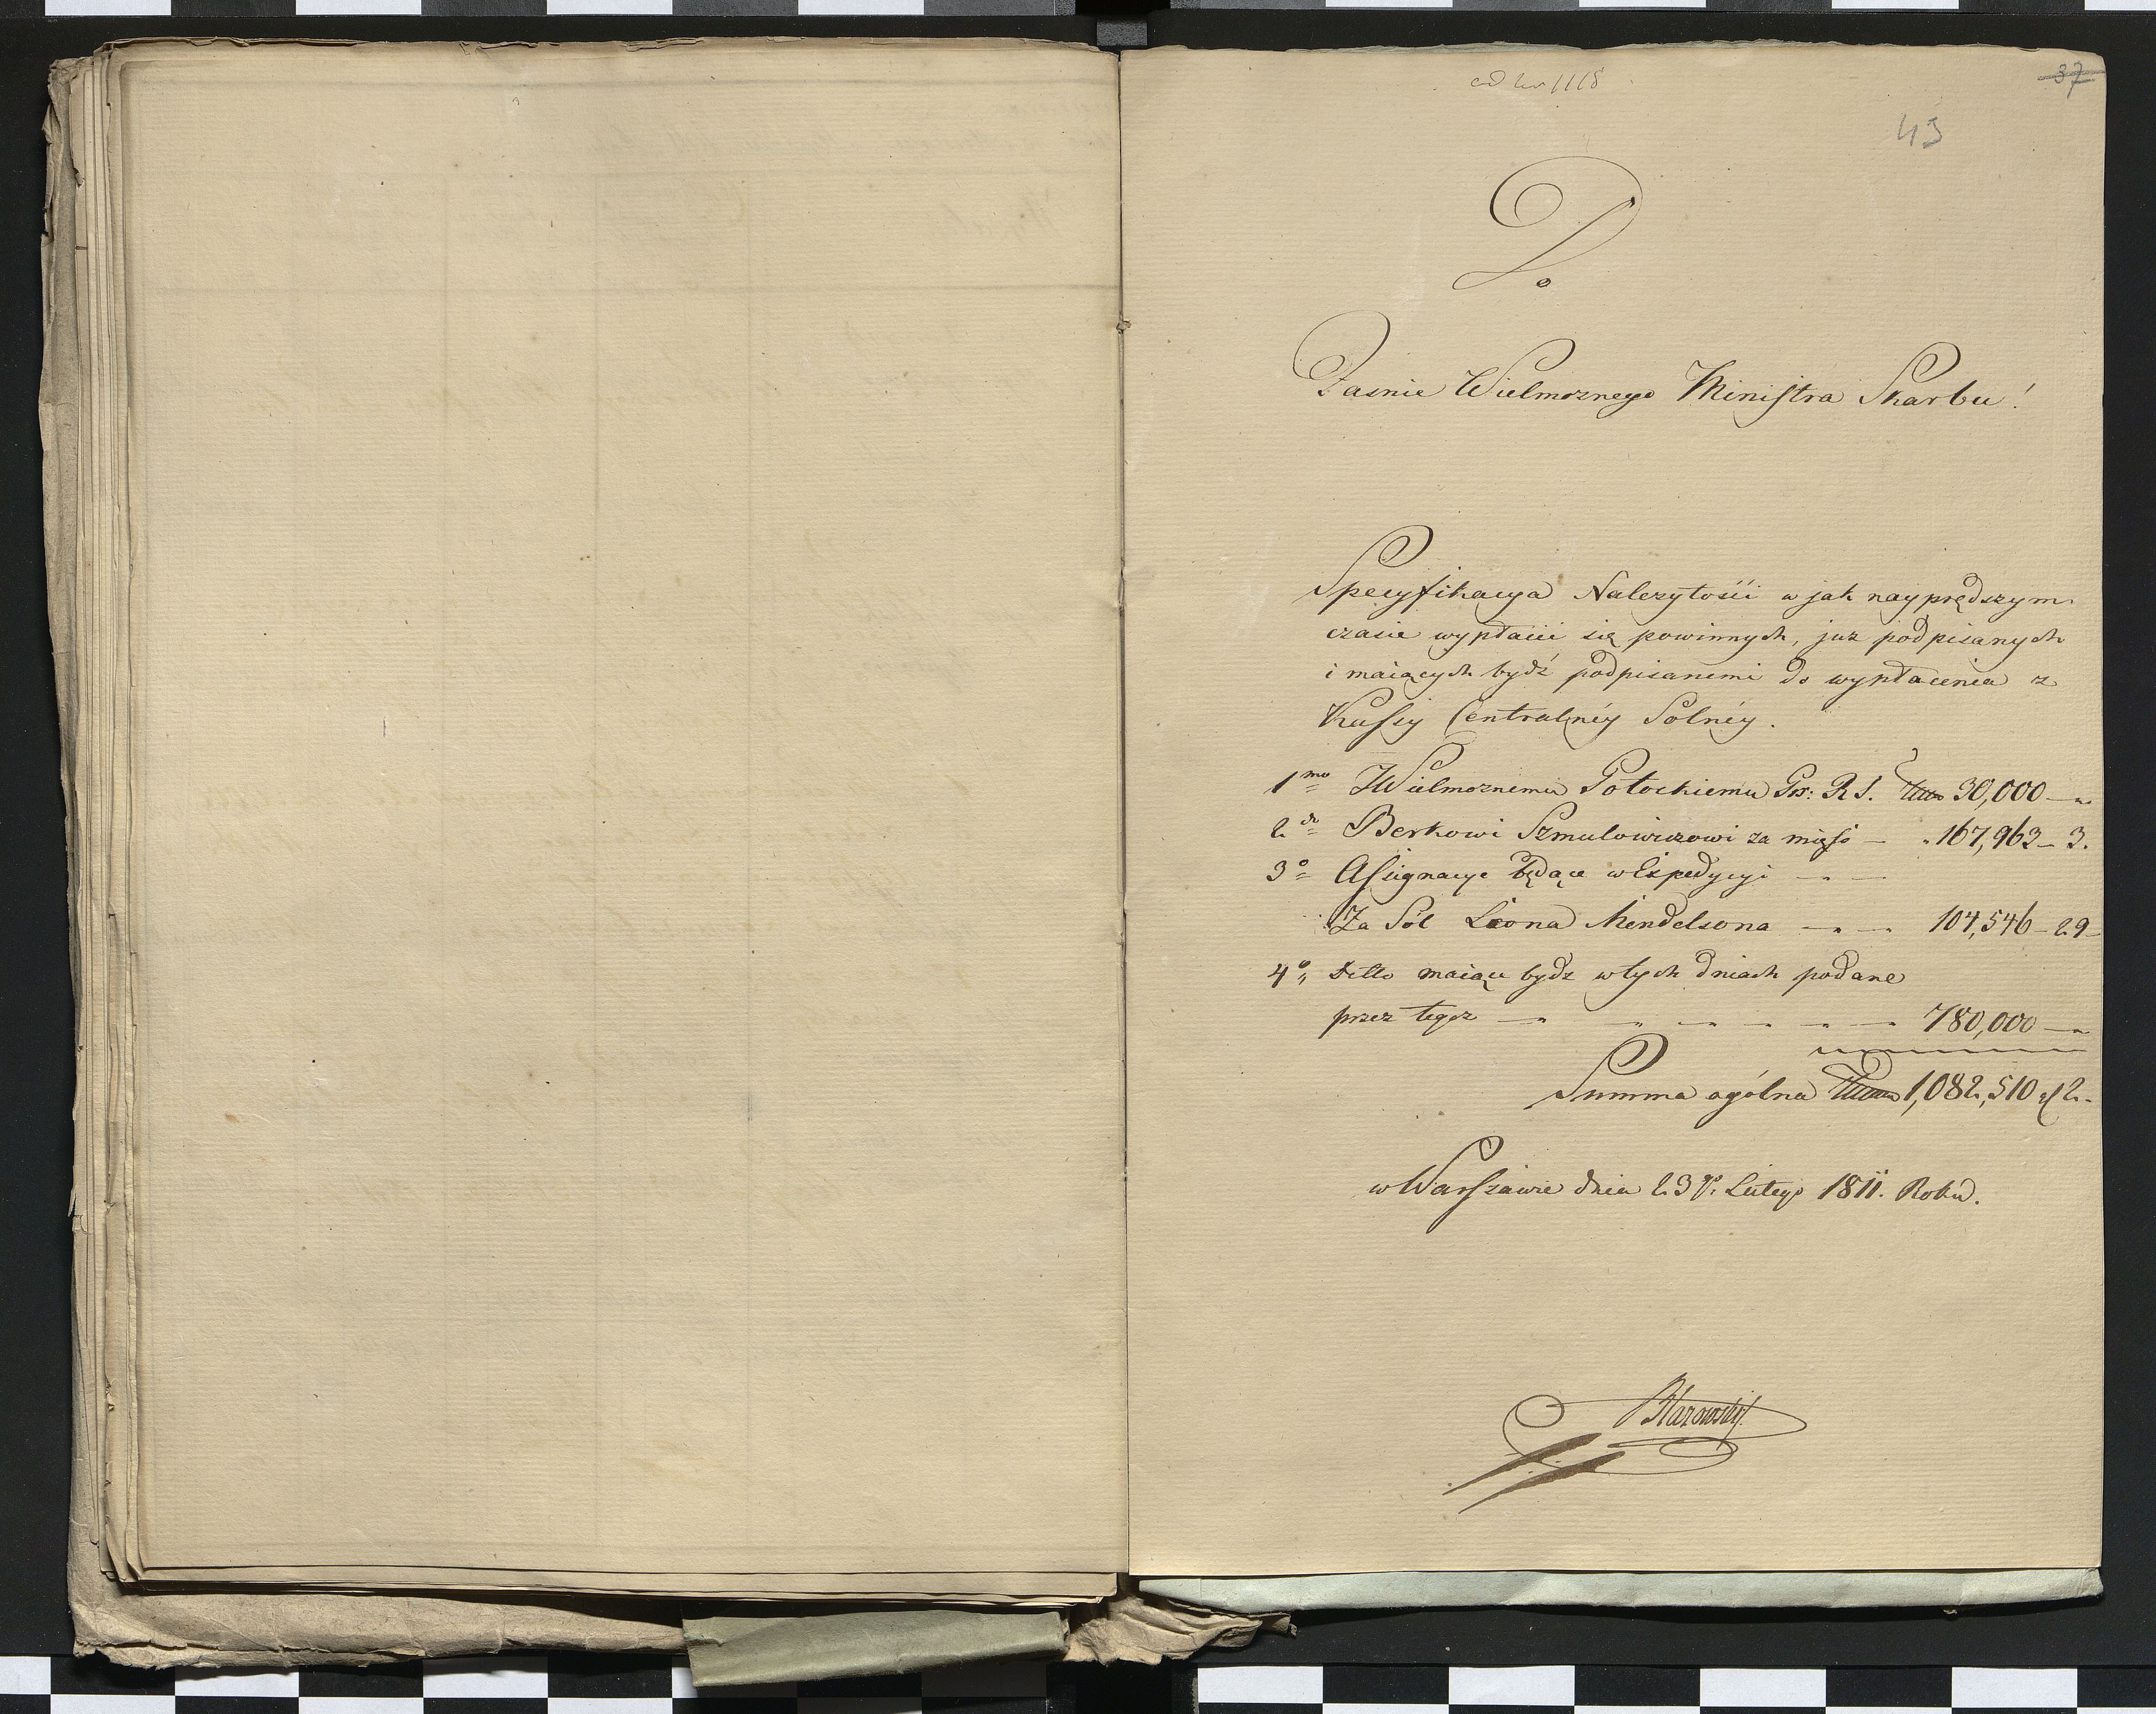 37
43
Do
Jaśnie Wielmoznego Ministra Skarbu!
Specyfikacya Nalezytości w jak nayprędszym
czasie wypłacić się powinnych, juz podpisanych
i maiących bydź podpisanemi do wypłacenia z
Kassy Centralnéy Solnéy.
1mo JWielmoznemu Potockiemu Pr: R S. 30,000 —
2do Berkowi Szmulowiczowi za mięso — 167,963 — 3.
3o Assignacye będące w Expedycyi — —
Za Sól Leona Mendelsona — — 104,546 — 29 —
4o Ditto maiące bydz w tych dniach podane
przez tegoz — — — — — — 780,000 —
Summa ogólna 1,082,510 zł 2.
w Warszawie dnia 23go Lutego 1811. Roku.